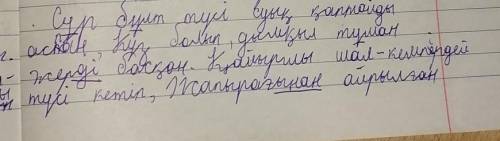 . Сұр бұлт түсі суық қаптайды
аспан, Күз болып, дымқыл тұман
жерді басқан. Қайыршы шал-кемпірдей
түсі кетіп, Жапырағынан айрылған